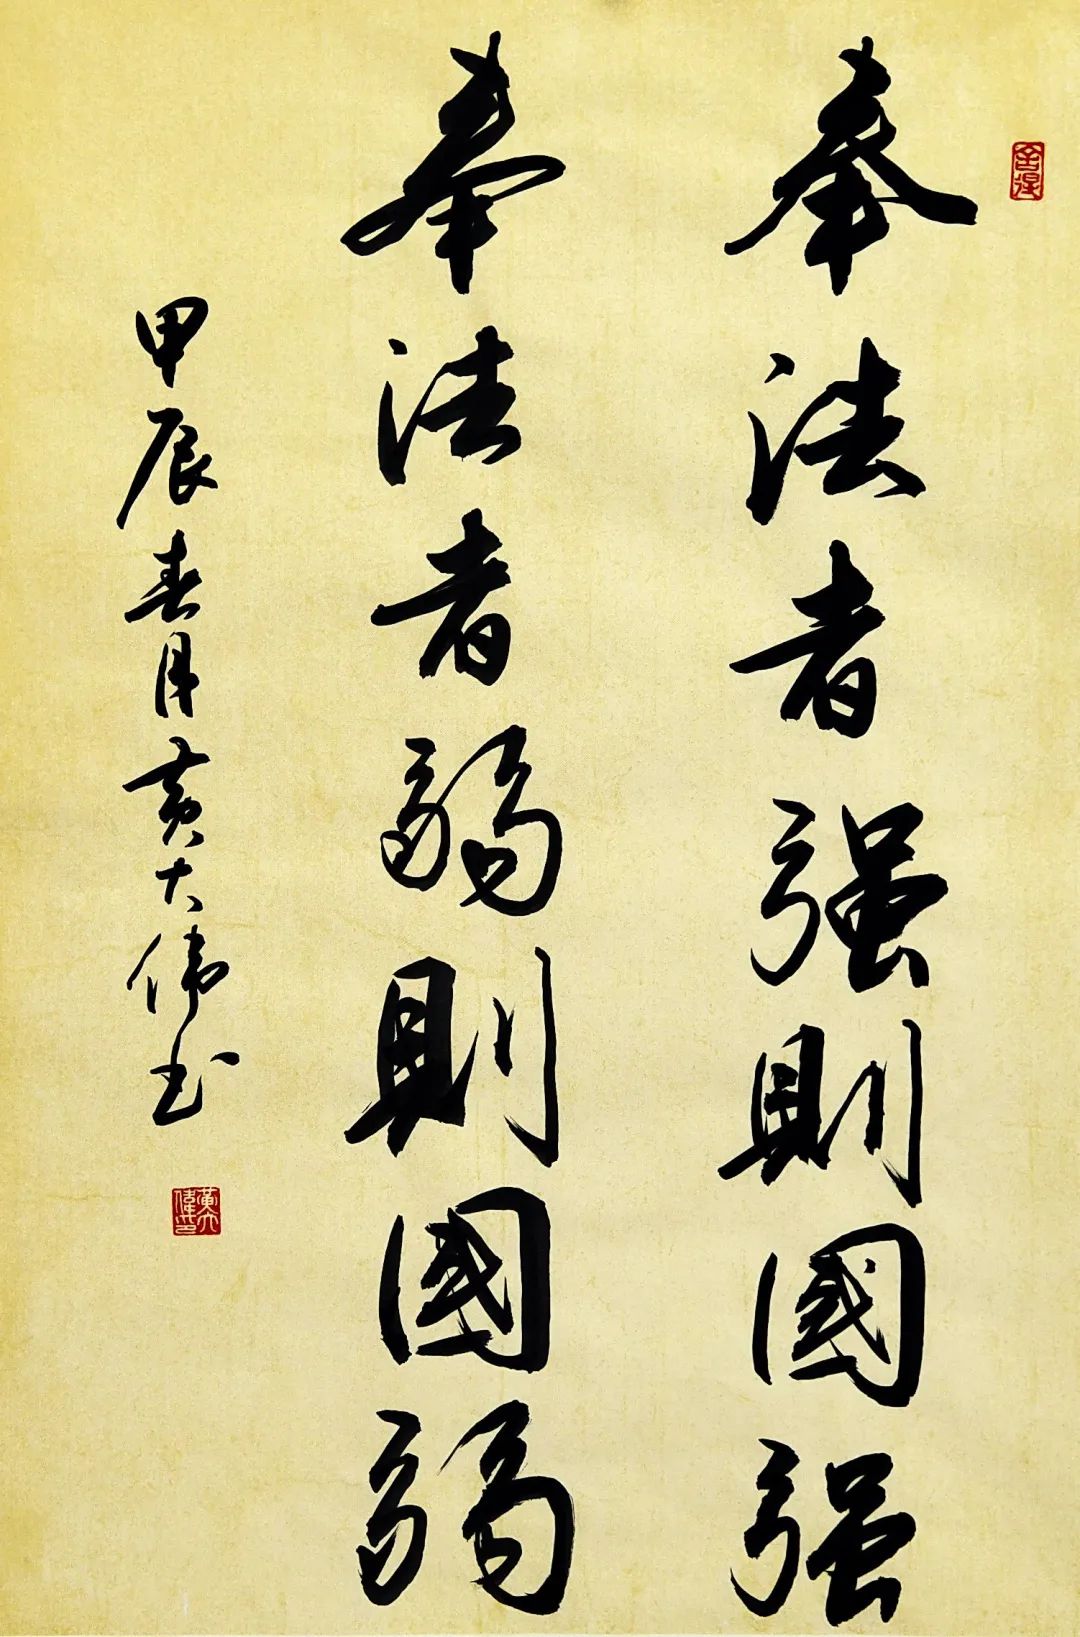 奉法者强則國强
奉法者弱則國弱
甲辰春月黄大偉书
舍得
黄大偉印